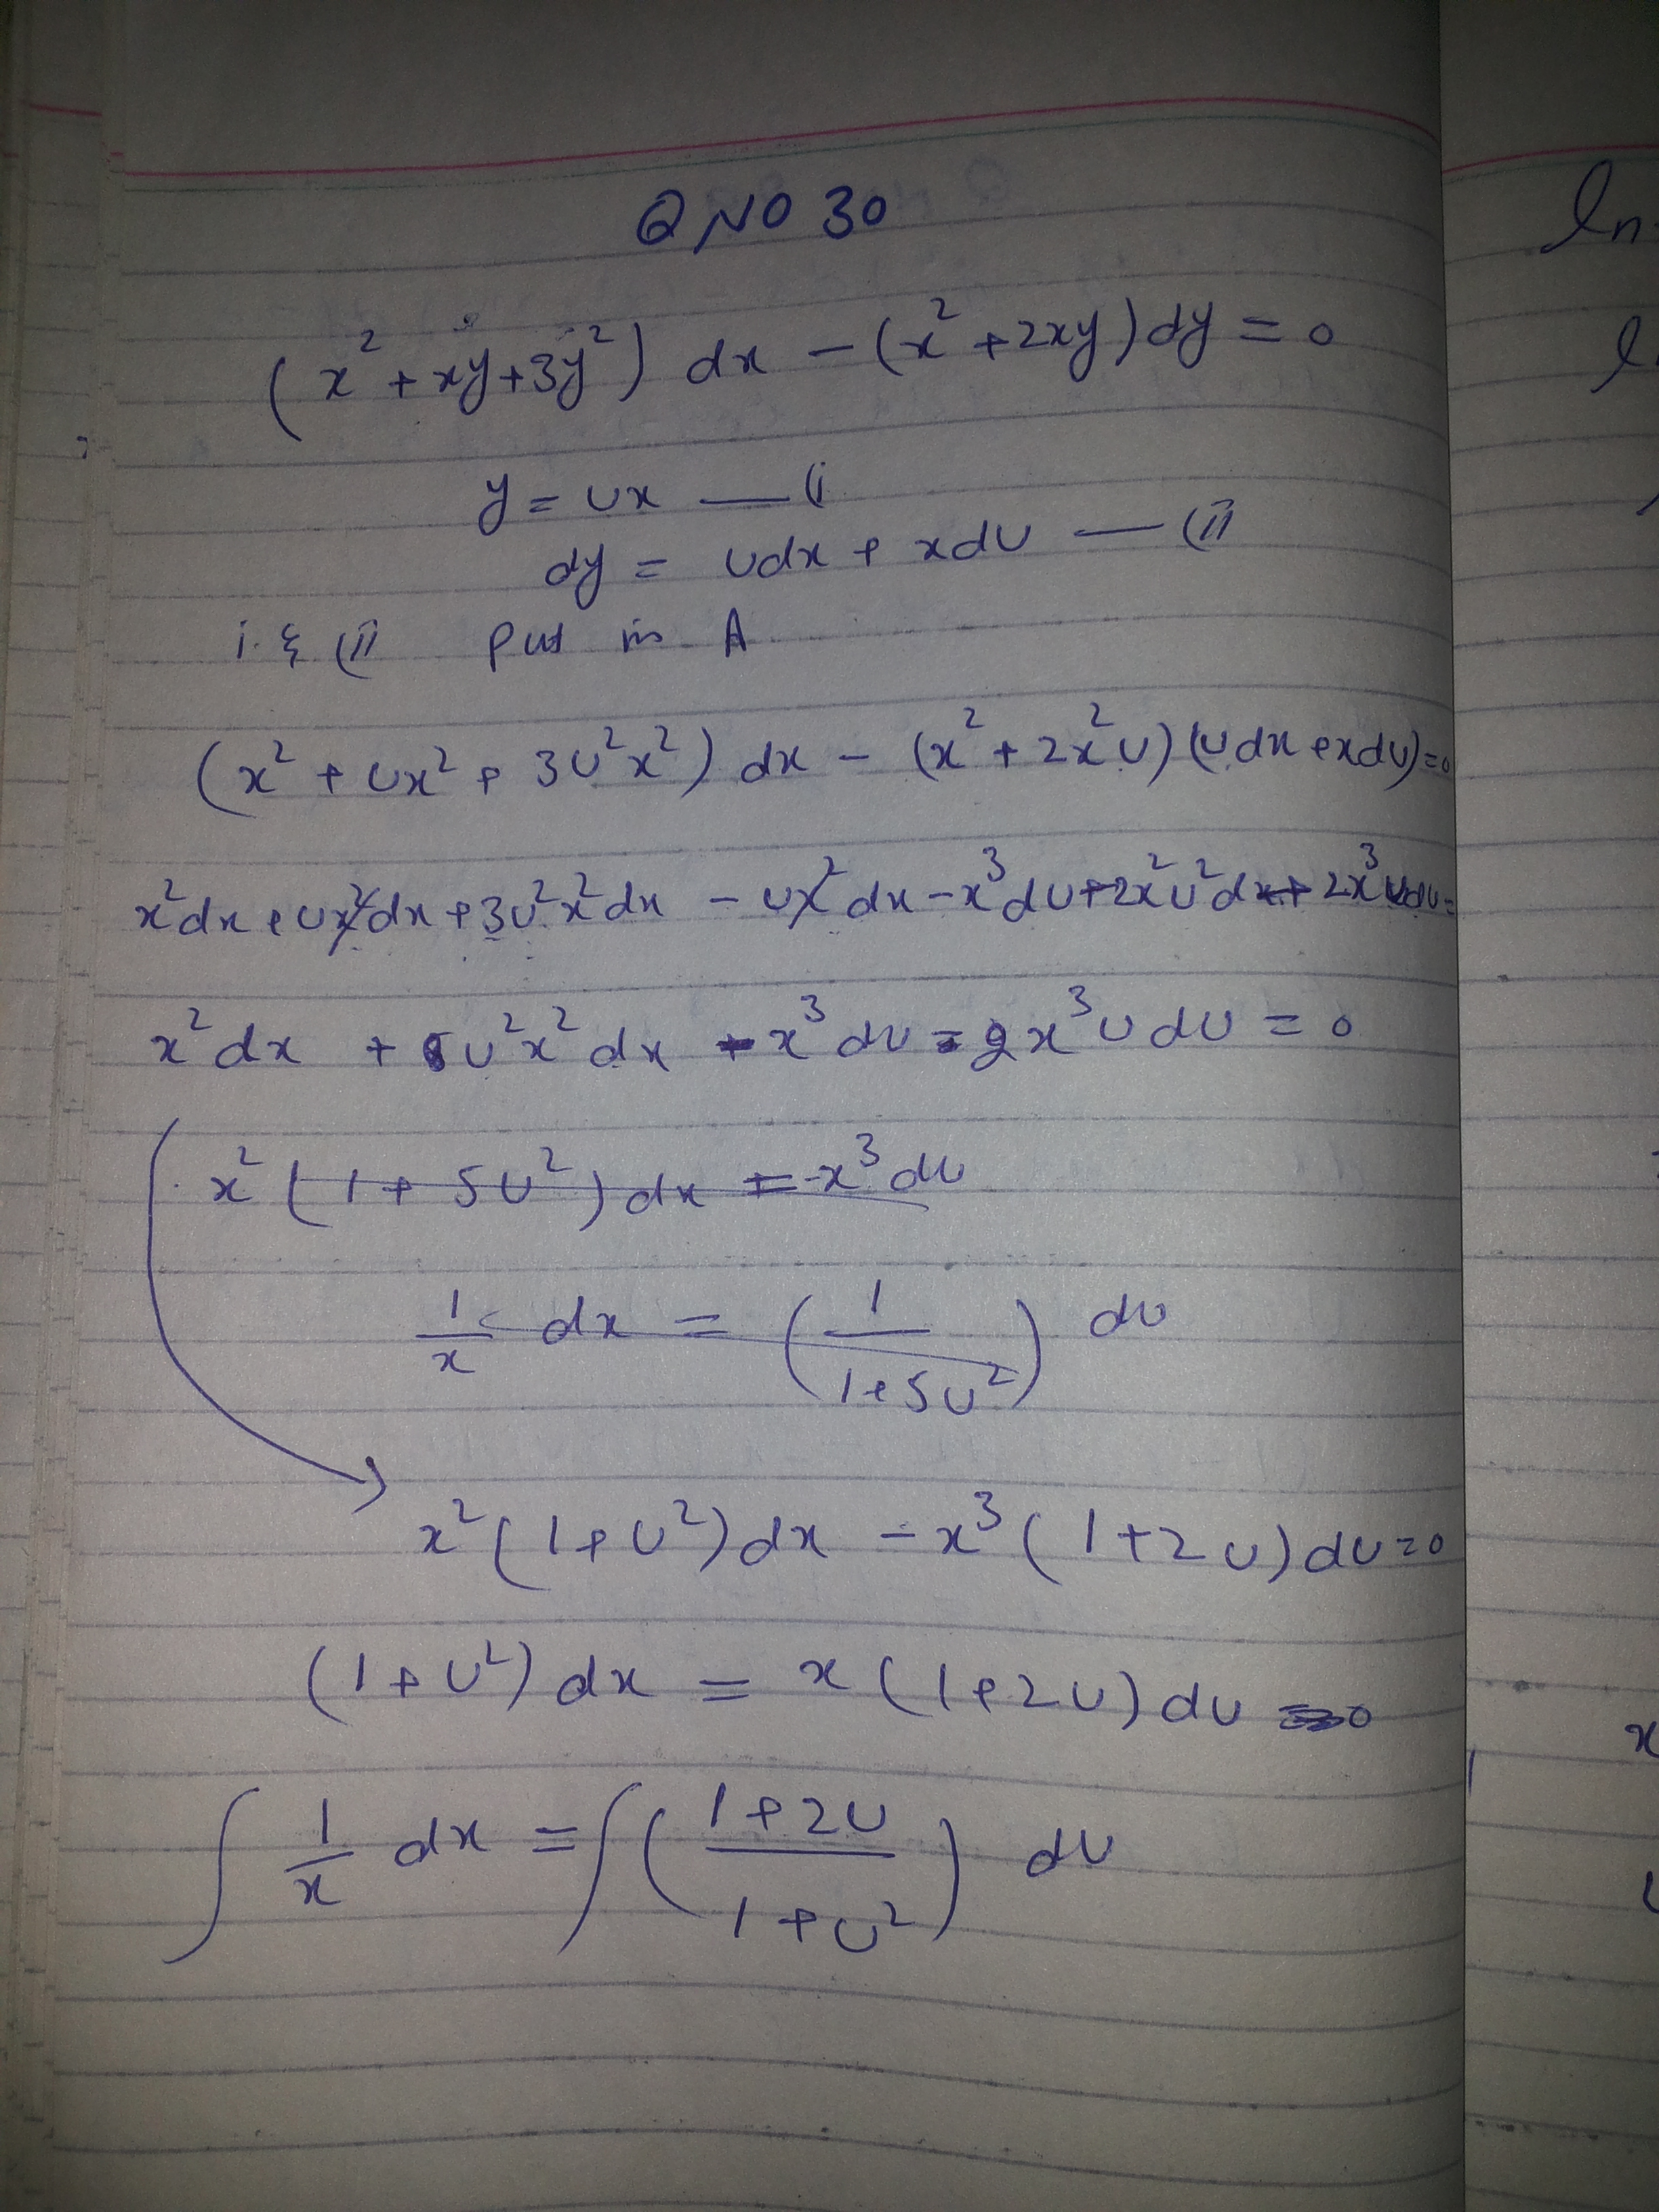 Q NO 30
(x² + xy + 3y²) dx - (x² + 2xy) dy = 0
y = ux — (i
dy = udx + xdu — (ii
i & (ii put in A
(x² + ux² + 3u²x²) dx - (x² + 2x²u) (udx + xdu) = 0
x²dx + ux²dx + 3u²x²dx - ux²dx - x³du + 2x²u²dx + 2x³udu =
x²dx + 5u²x²dx - x³du - 2x³udu = 0
x² (1 + 5u²) dx = -x³ du
1/x dx = (1/1+5u²) du
x² (1 + u²) dx - x³ (1 + 2u) du = 0
(1 + u²) dx = x (1 + 2u) du = 0
∫ 1/x dx = ∫ (1+2u/1+u²) du
ln
l
x